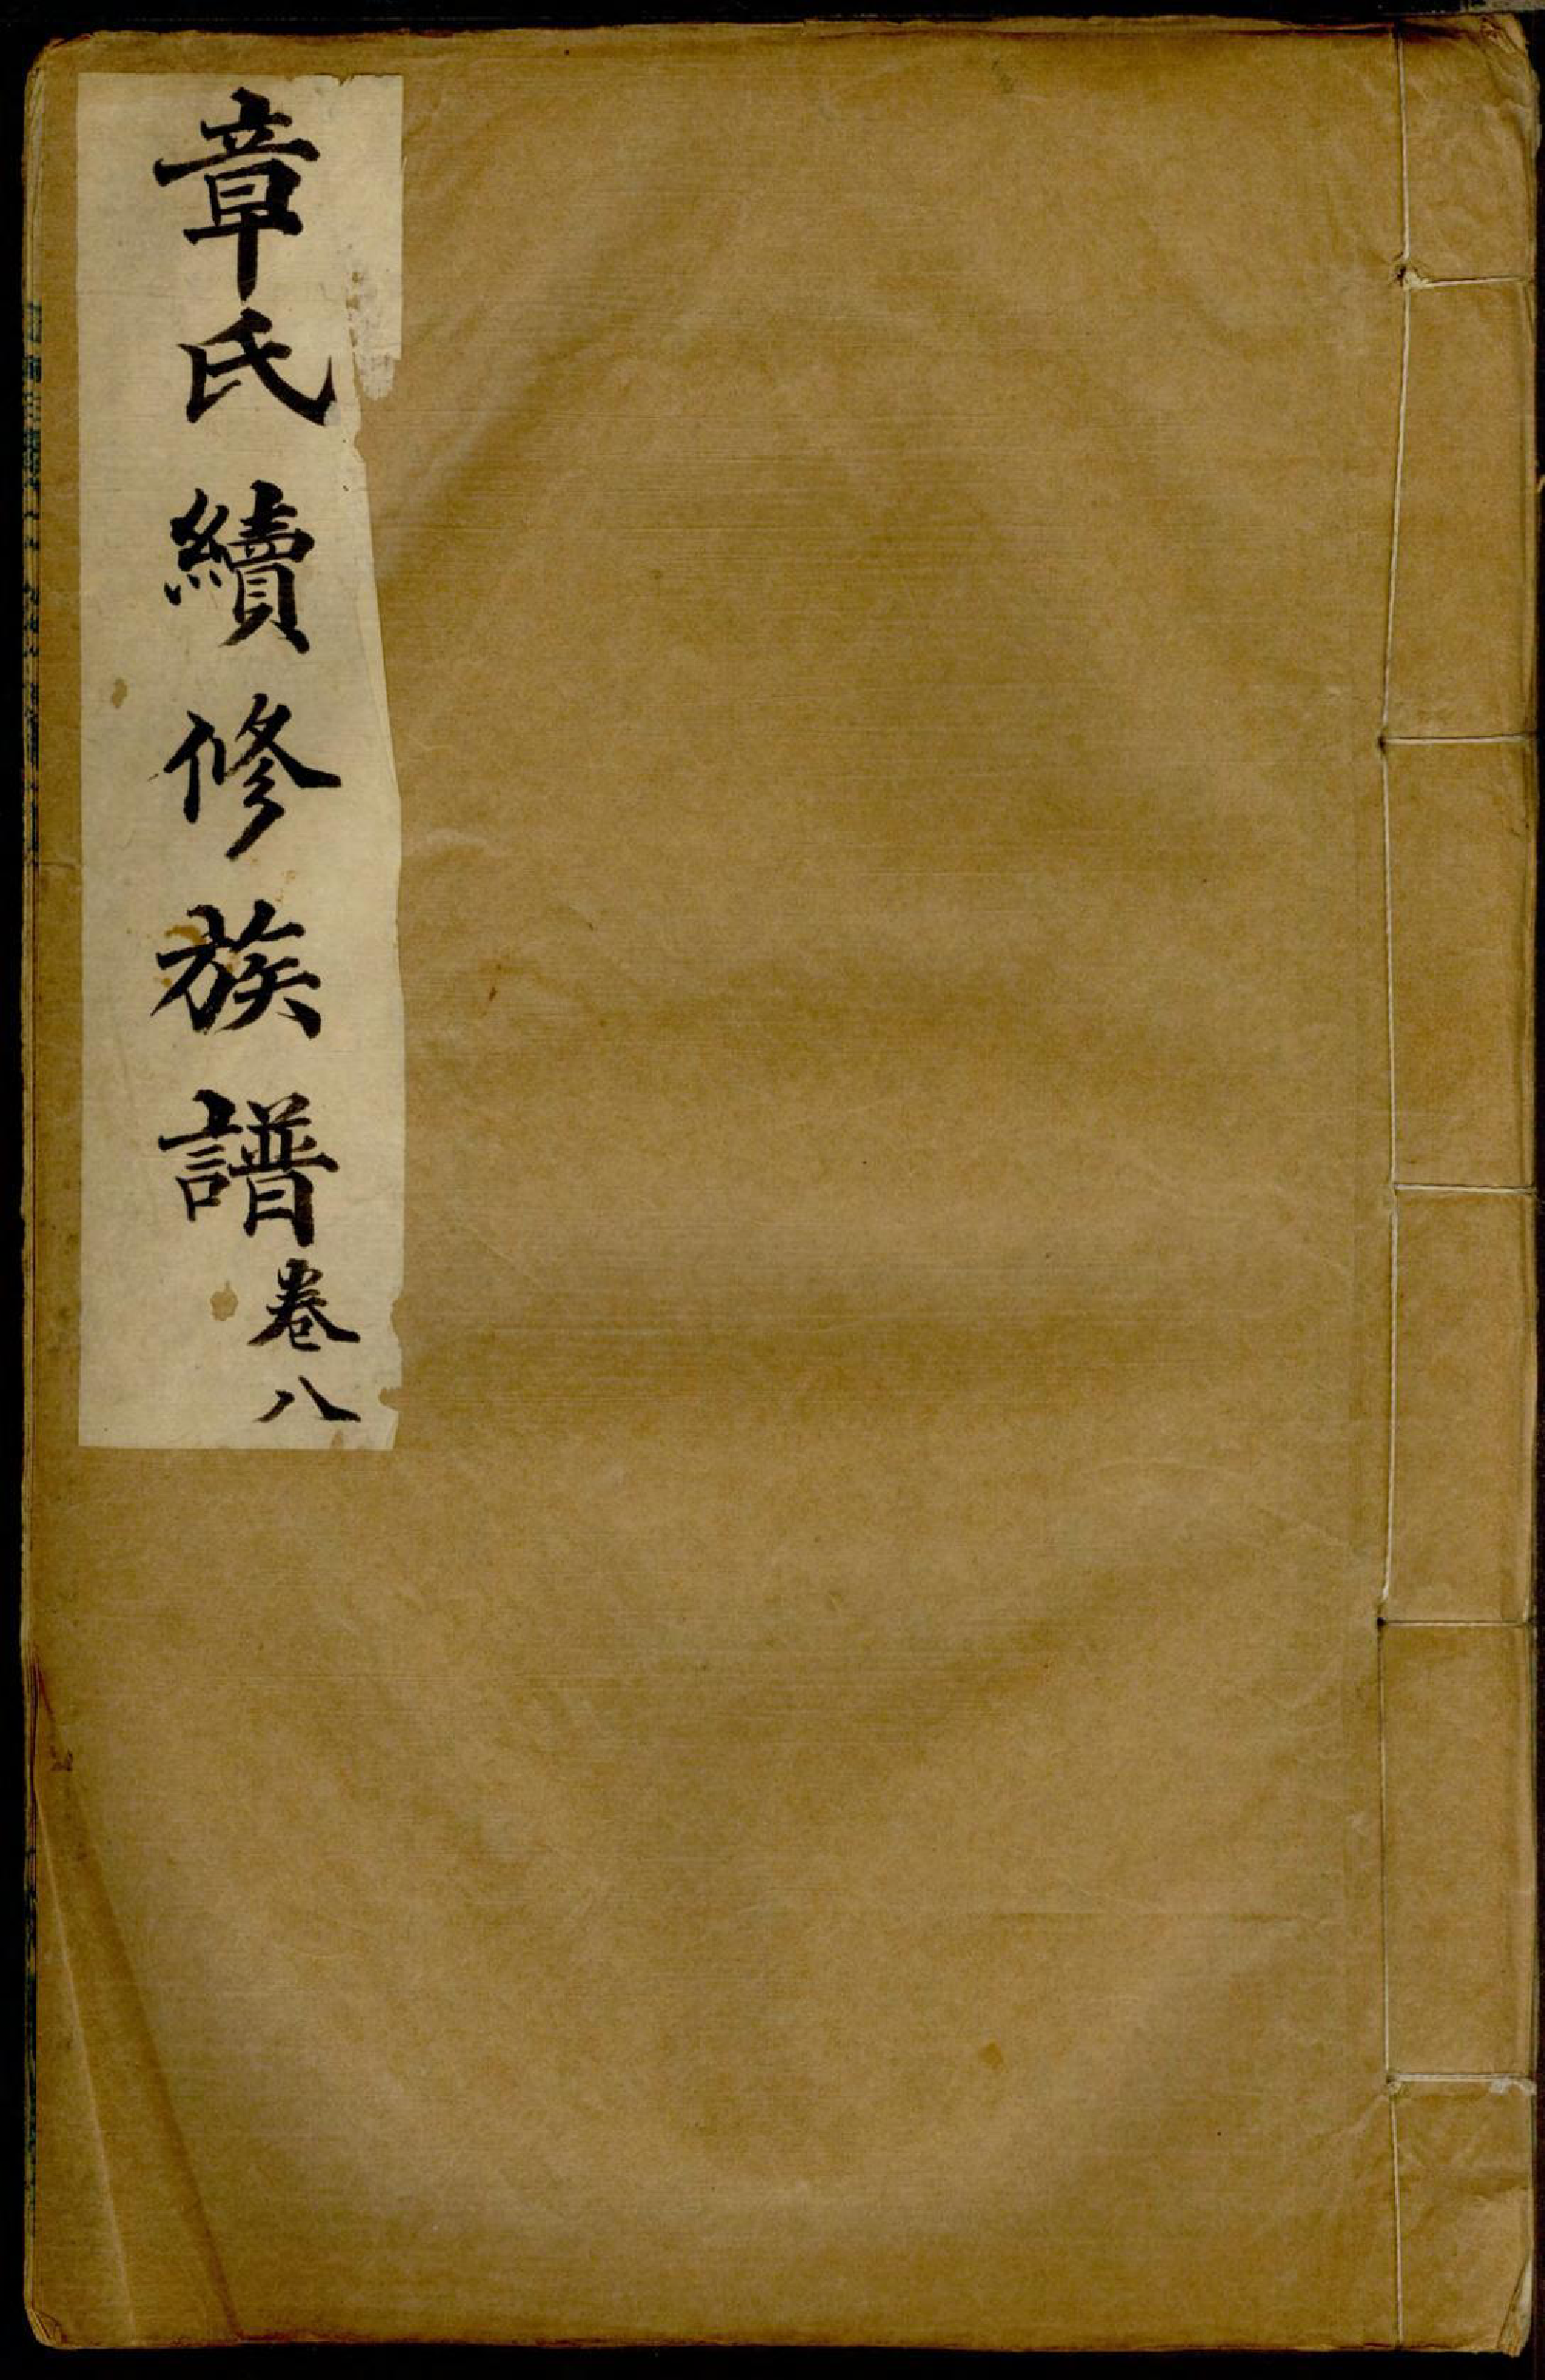 章氏續修族譜卷八